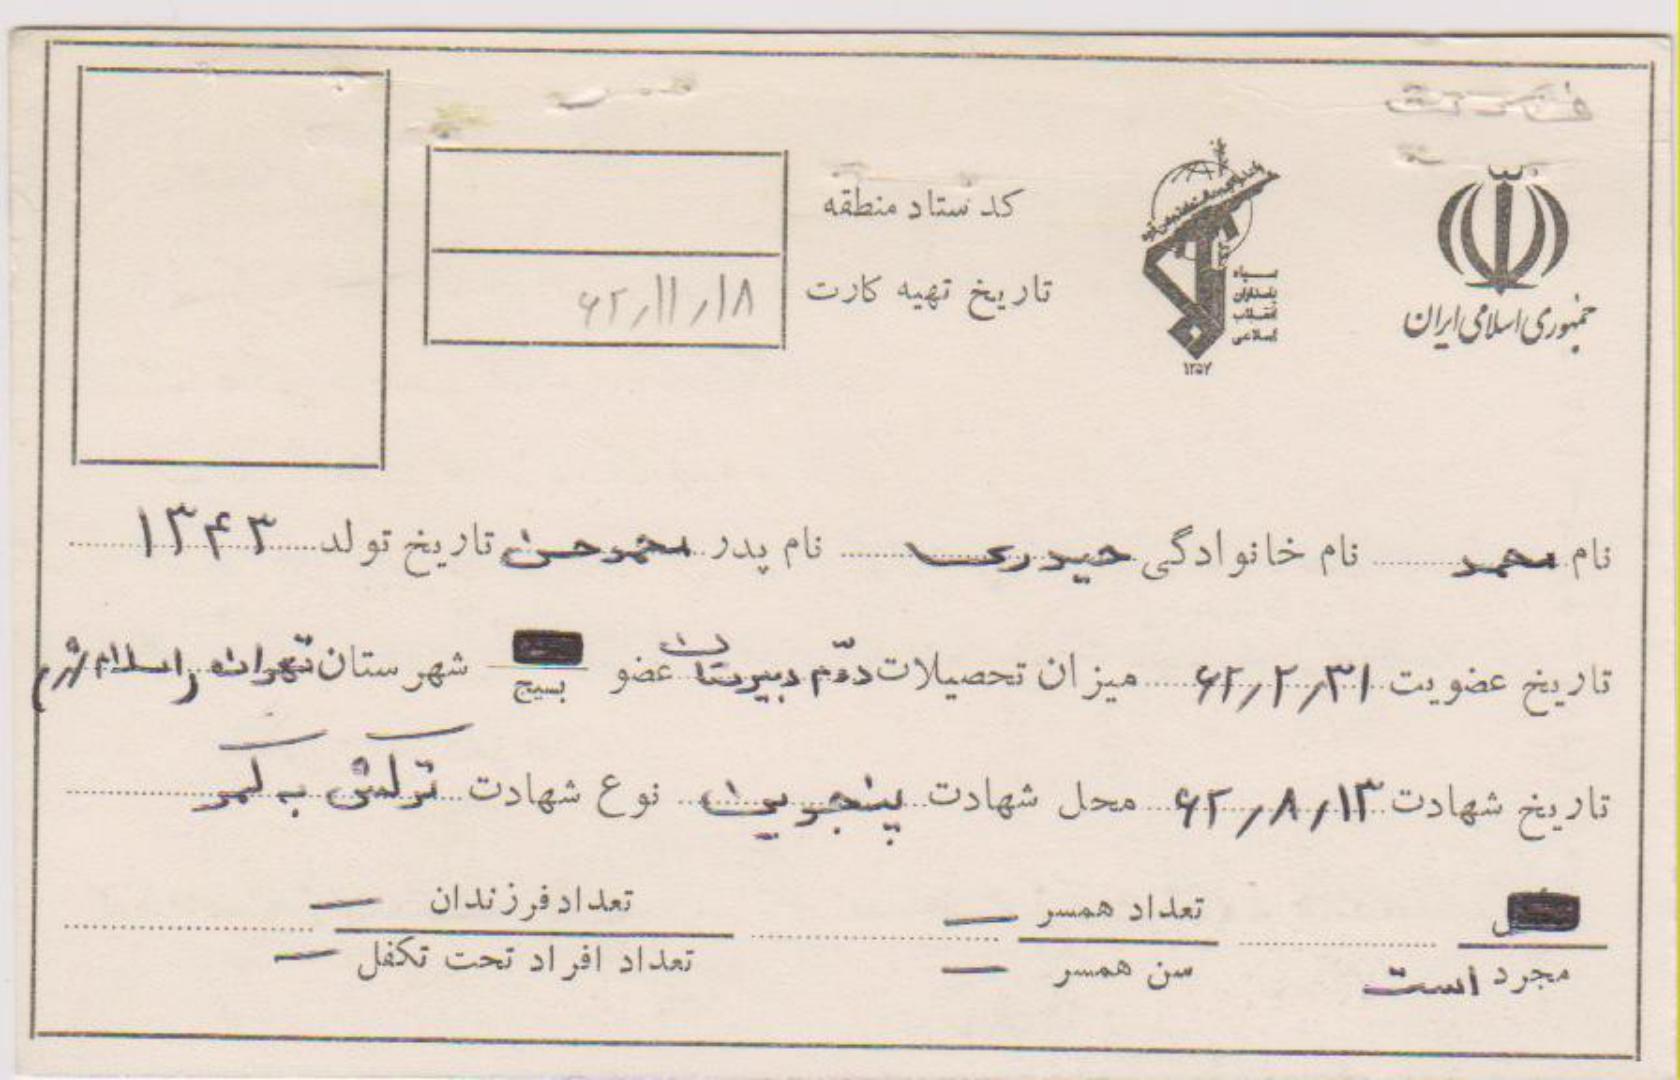 جمهوری اسلامی ایران
سپاه
پاسداران
انقلاب
اسلامی
۱۳۵۷
کد ستاد منطقه
تاریخ تهیه کارت ۶۲/۱۱/۱۸
نام محمد نام خانوادگی حیدری نام پدر محمدحسن تاریخ تولد ۱۳۴۳
تاریخ عضویت ۶۲/۲/۳۱ میزان تحصیلات دوّم دبیرستان عضو بسیج شهرستان تهران اسلام شهر
تاریخ شهادت ۶۲/۸/۱۳ محل شهادت پنجوین نوع شهادت ترکش به کمر
تعداد همسر — تعداد فرزندان —
مجرد است سن همسر — تعداد افراد تحت تکفل —